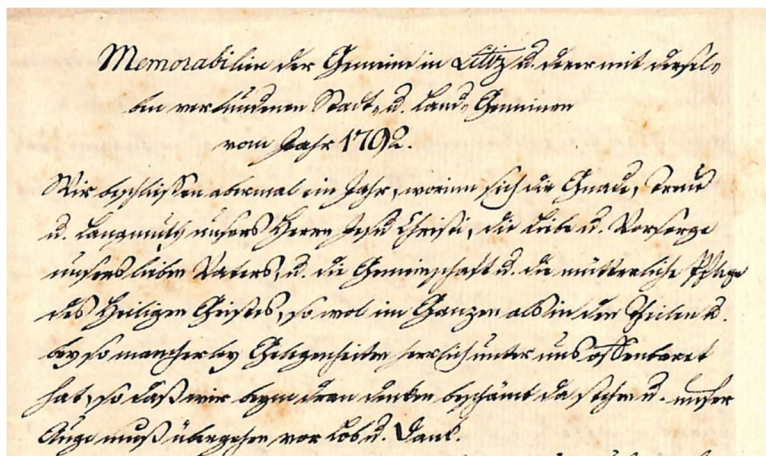 Memorabilien der Gemein in Lititz u. derer mit dersel-
ben verbundenen Stadt- u. Land-Gemeinen
vom Jahr 1792.
Wir beschliessen abermal ein Jahr, worinn sich die Gnade, Treue
u. Langmuth unsers Herrn Jesu Christi, die Liebe u. Vorsorge
unsers lieben Vaters, u. die Gemeinschaft u. die mütterliche Pflege
des Heiligen Geistes, so wol im Ganzen als in den Theilen u.
bey so mancherley Gelegenheiten herrlich unter uns offenbaret
hat, so daß wir beym dran denken beschämt da stehn u. unser
Auge muß übergehen vor Lob u. Dank.